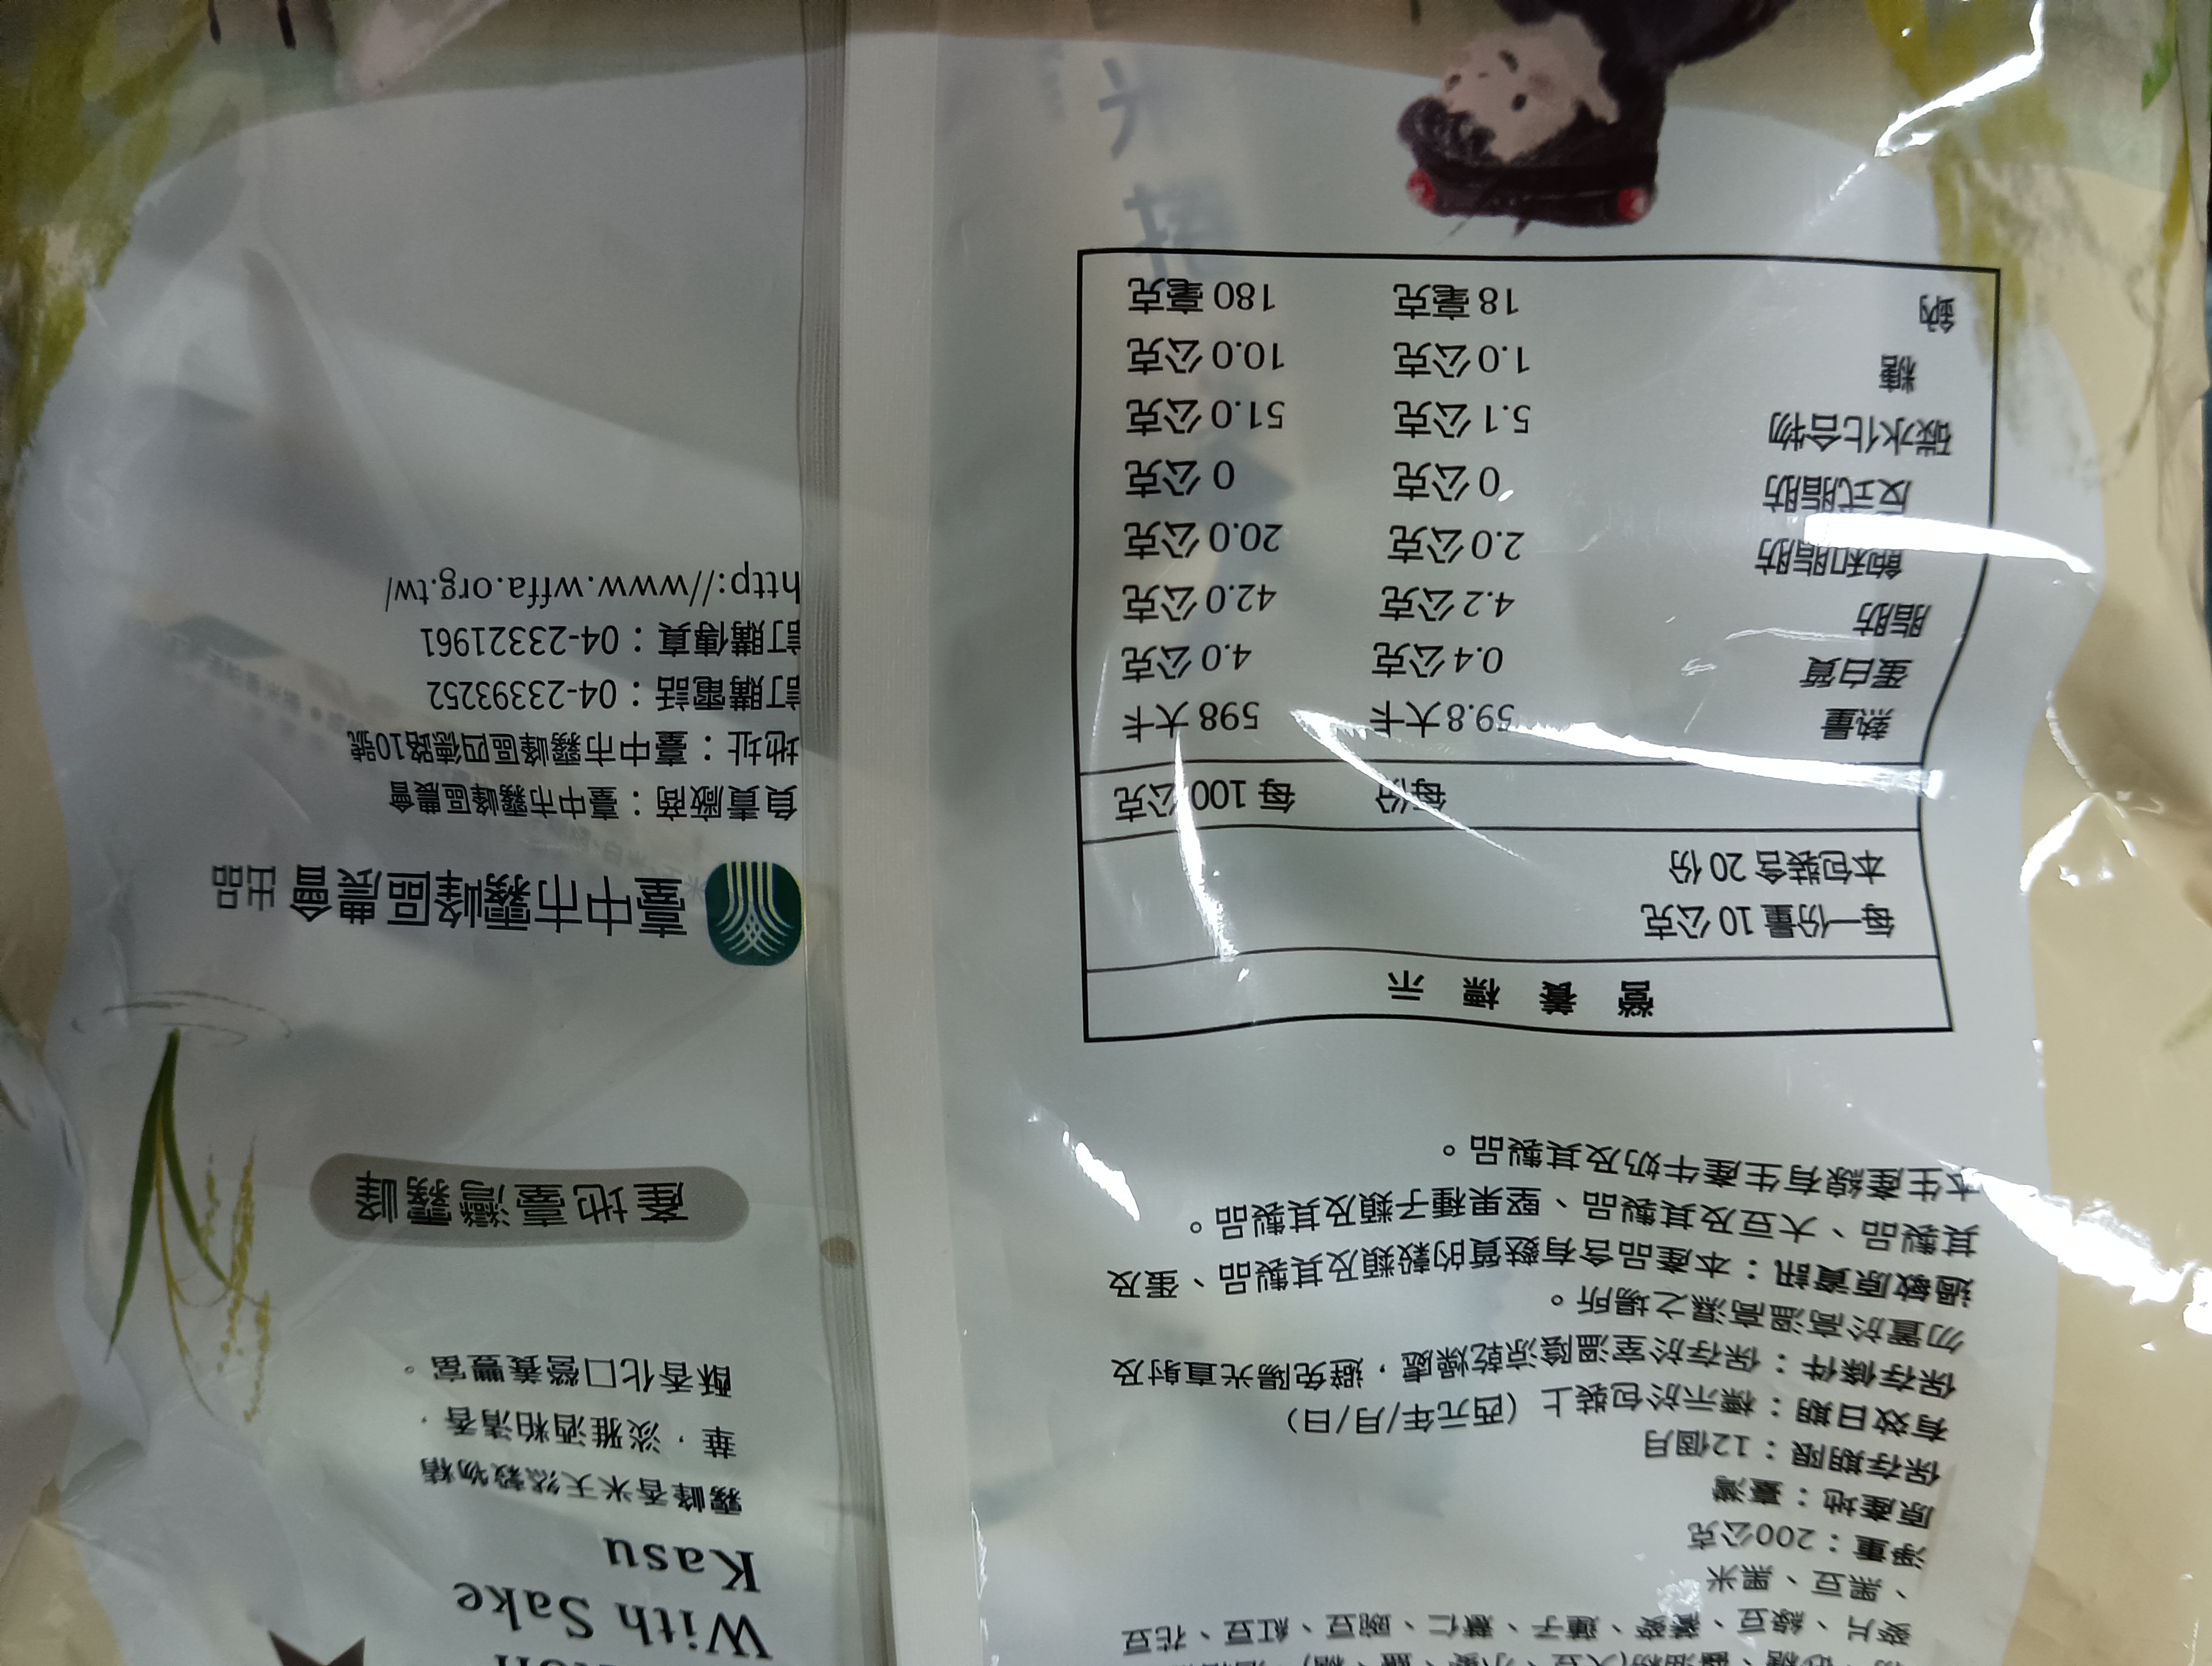 、砂糖、醬油粉(大豆、小麥、鹽、糖)、
麥片、綠豆、蕎麥、蓮子、薏仁、豌豆、紅豆、花豆
、黑豆、黑米
淨重：200公克
原產地：臺灣
保存期限：12個月
有效日期：標示於包裝上（西元年/月/日）
保存條件：保存於室溫陰涼乾燥處，避免陽光直射及
勿置於高溫高濕之場所。
過敏原資訊：本產品含有麩質的穀類及其製品、蛋及
其製品、大豆及其製品、堅果種子類及其製品。
本生產線有生產牛奶及其製品。
營養標示
每一份量 10 公克
本包裝含 20 份
每份 每 100 公克
熱量 59.8 大卡 598 大卡
蛋白質 0.4 公克 4.0 公克
脂肪 4.2 公克 42.0 公克
飽和脂肪 2.0 公克 20.0 公克
反式脂肪 0 公克 0 公克
碳水化合物 5.1 公克 51.0 公克
糖 1.0 公克 10.0 公克
鈉 18 毫克 180 毫克
With Sake
Kasu
霧峰香米天然穀物精
華，淡雅酒粕清香，
酥香化口營養豐富。
產地臺灣霧峰
臺中市霧峰區農會 出品
負責廠商：臺中市霧峰區農會
地址：臺中市霧峰區四德路10號
訂購電話：04-23393252
訂購傳真：04-23321961
http://www.wffa.org.tw/